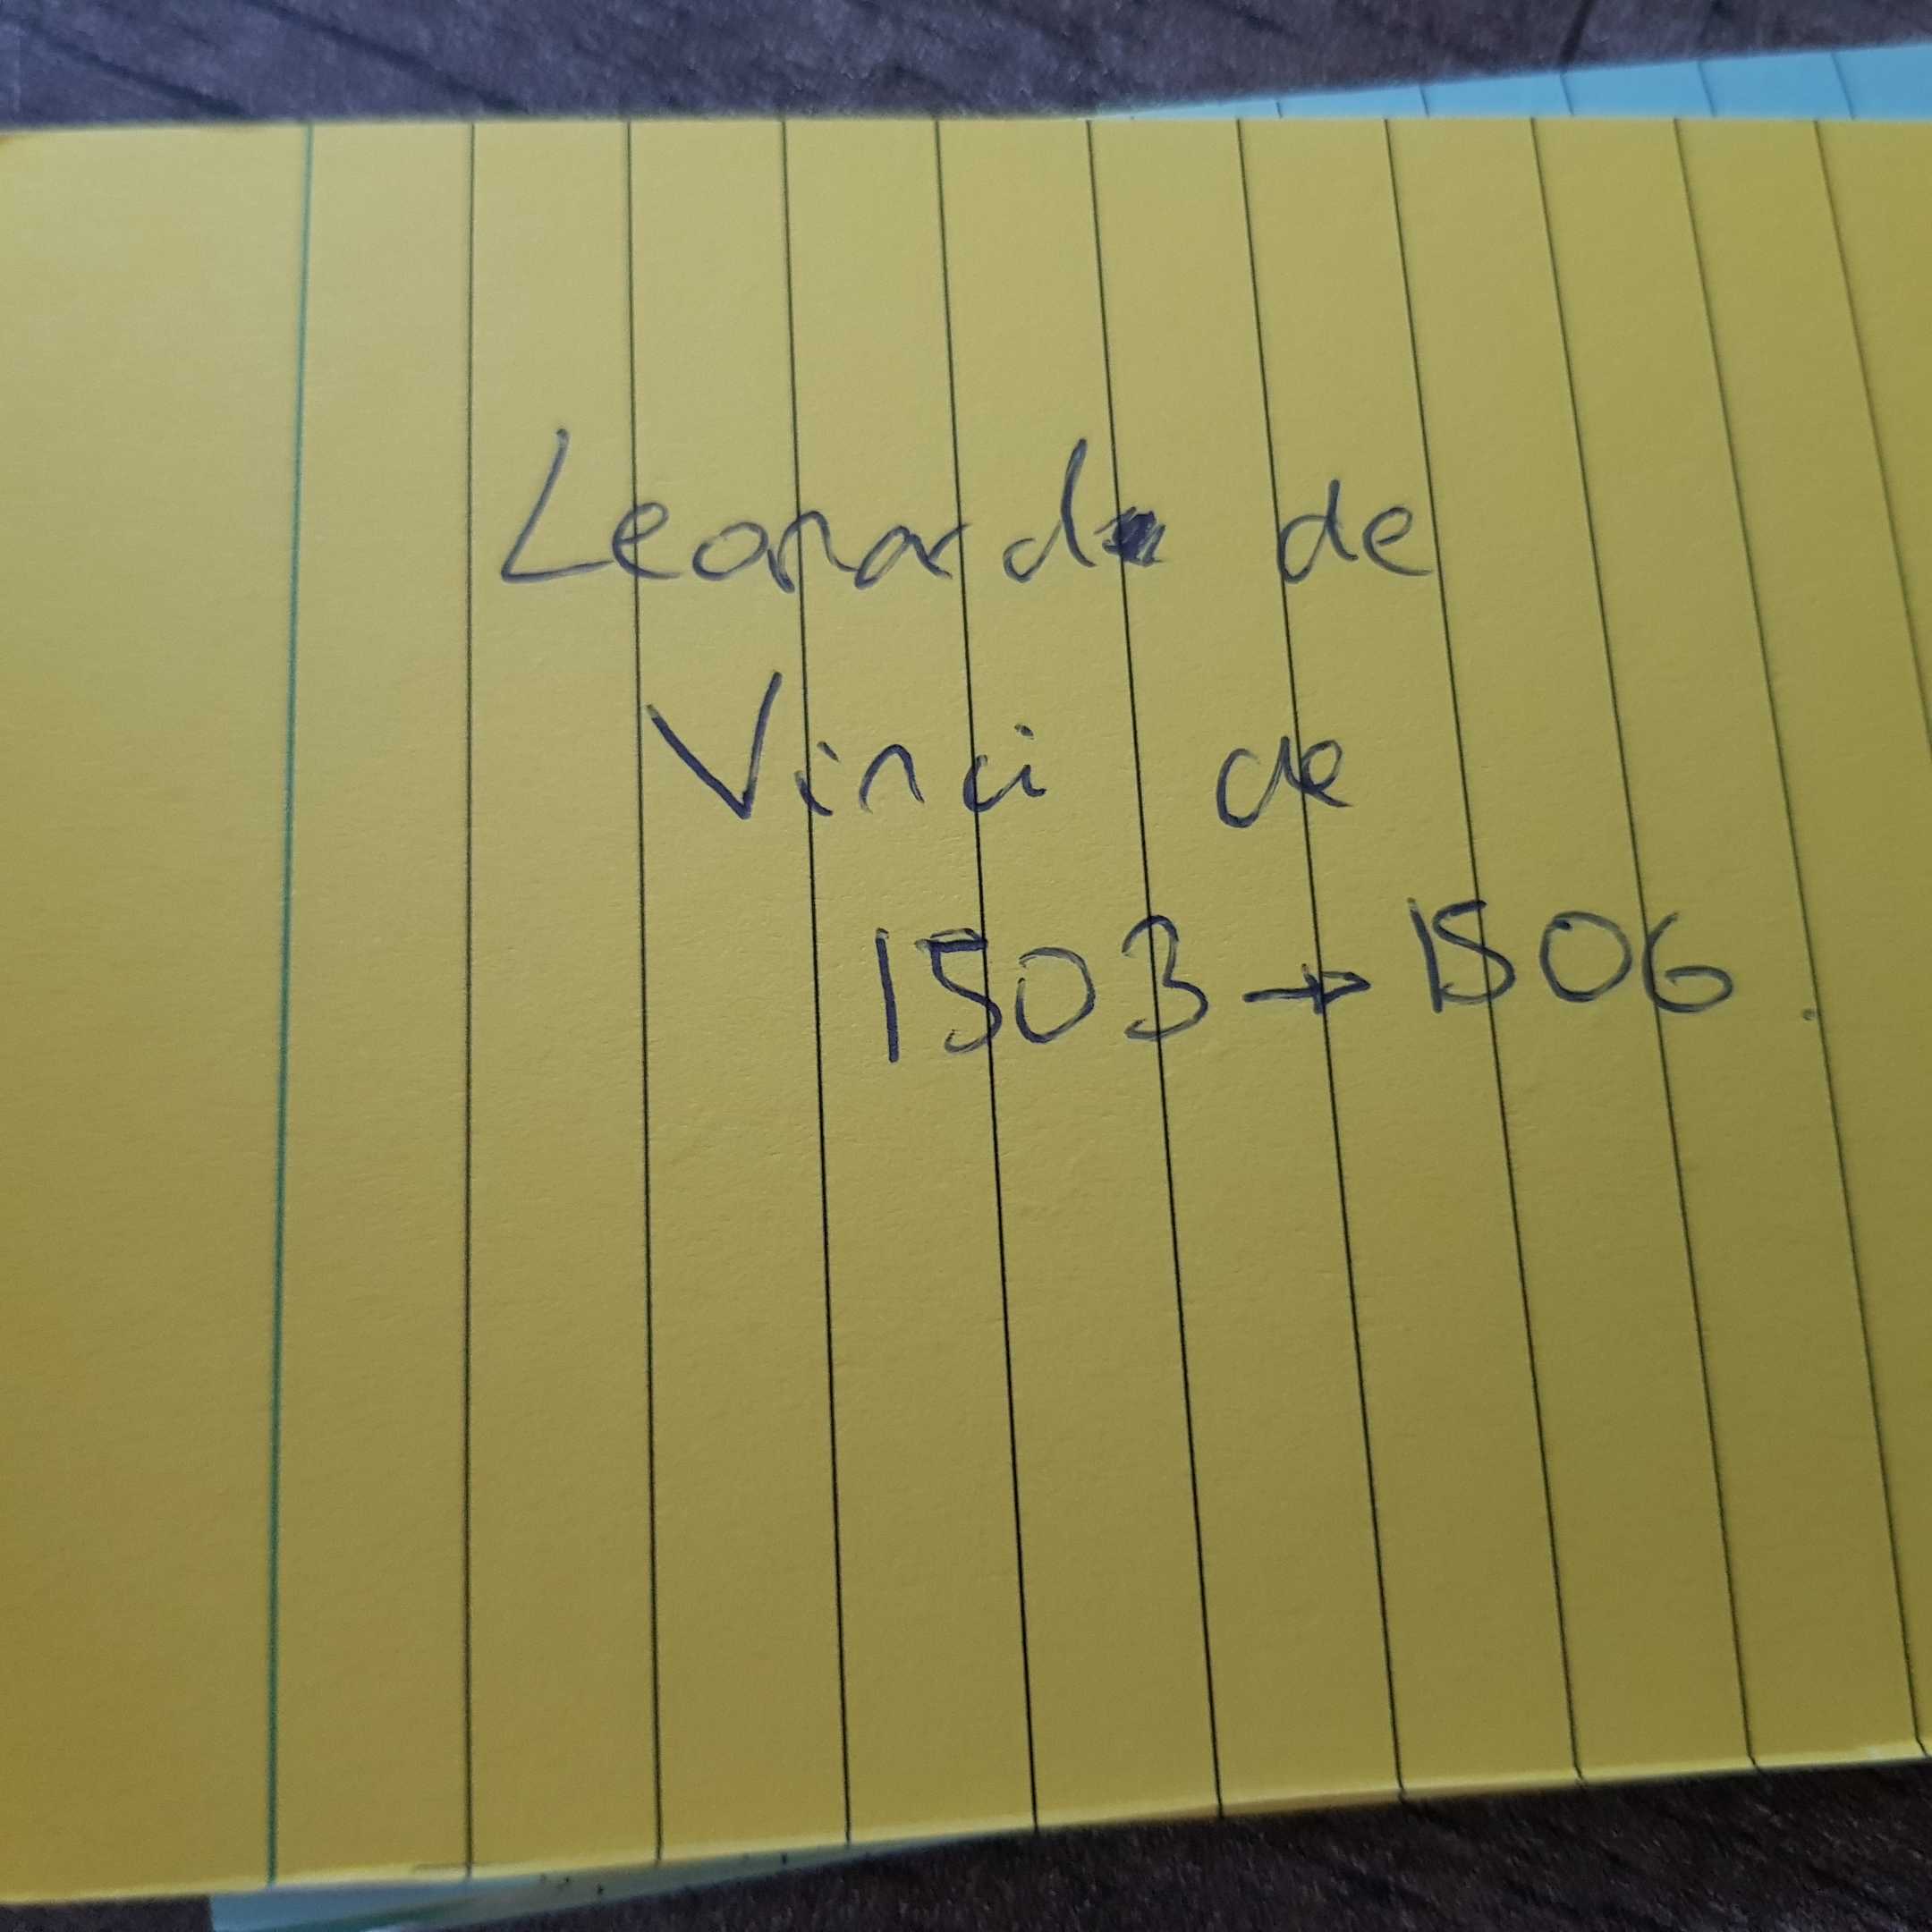 Leonard de
Vinci de
1503 → 1506.